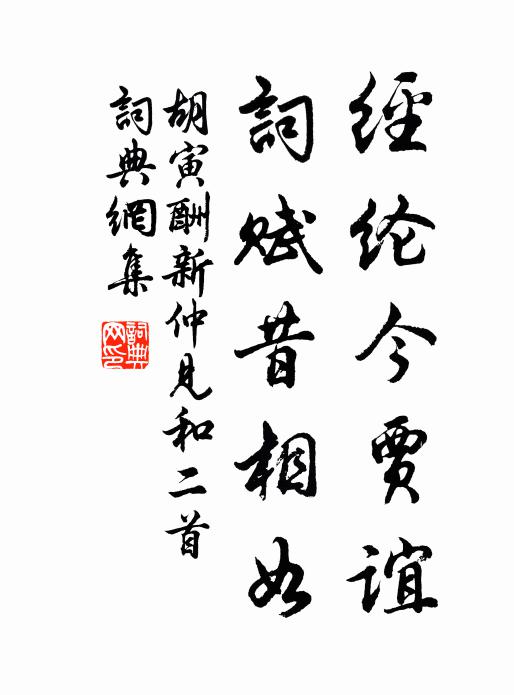 經纶今賈誼
詞赋昔相如
胡寅酬新仲見和二首
詞典網集
詞典网印